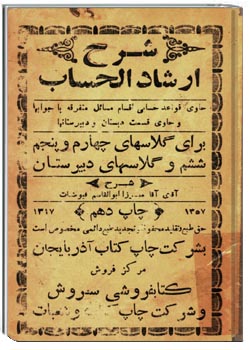 شرح
ارشاد الحساب
حاوی قواعد حسابی اقسام مسائل متفرقه با جوابها
و حاوی قسمت دبستان و دبیرستانها
برای کلاسهای چهارم و پنجم
ششم و کلاسهای دبیرستان
شرح
آقای آقا میرزا ابوالقاسم فیوضات
۱۳۵۷ چاپ دهم ۱۳۱۷
حق طبع و تقلید محفوظ و تجدید طبع دائمی مخصوص است
بشرکت چاپ کتاب آذربایجان
مرکز فروش
کتابفروشی سروش
و شرکت چاپ کتاب